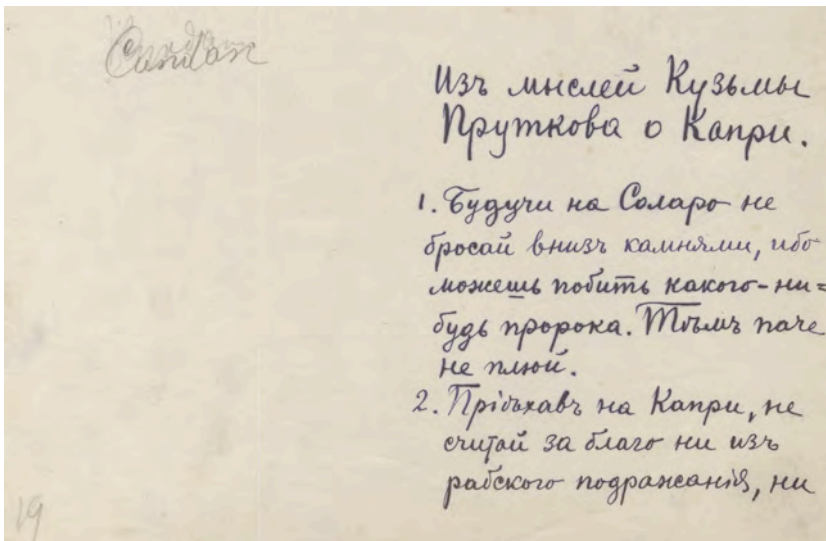 Изъ мыслей Кузьмы
Пруткова о Капри.
1. Будучи на Соларо не
бросай внизъ камнями, ибо
можешь побить какого-ни=
будь пророка. Тѣмъ паче
не плюй.
2. Пріѣхавъ на Капри, не
считай за благо ни изъ
рабского подражанія, ни
19